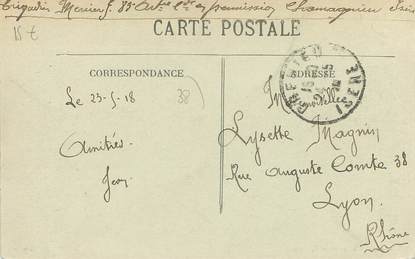 Brigadier Mercier J. 83e Art. en permission Chamagnieu Isère
15 €
CARTE POSTALE
CORRESPONDANCE
ADRESSE
38
Le 23-5-18
Amitiés
Mademoiselle
Lysette Magnin
Rue Auguste Comte 38
Lyon
Rhône
ISERE